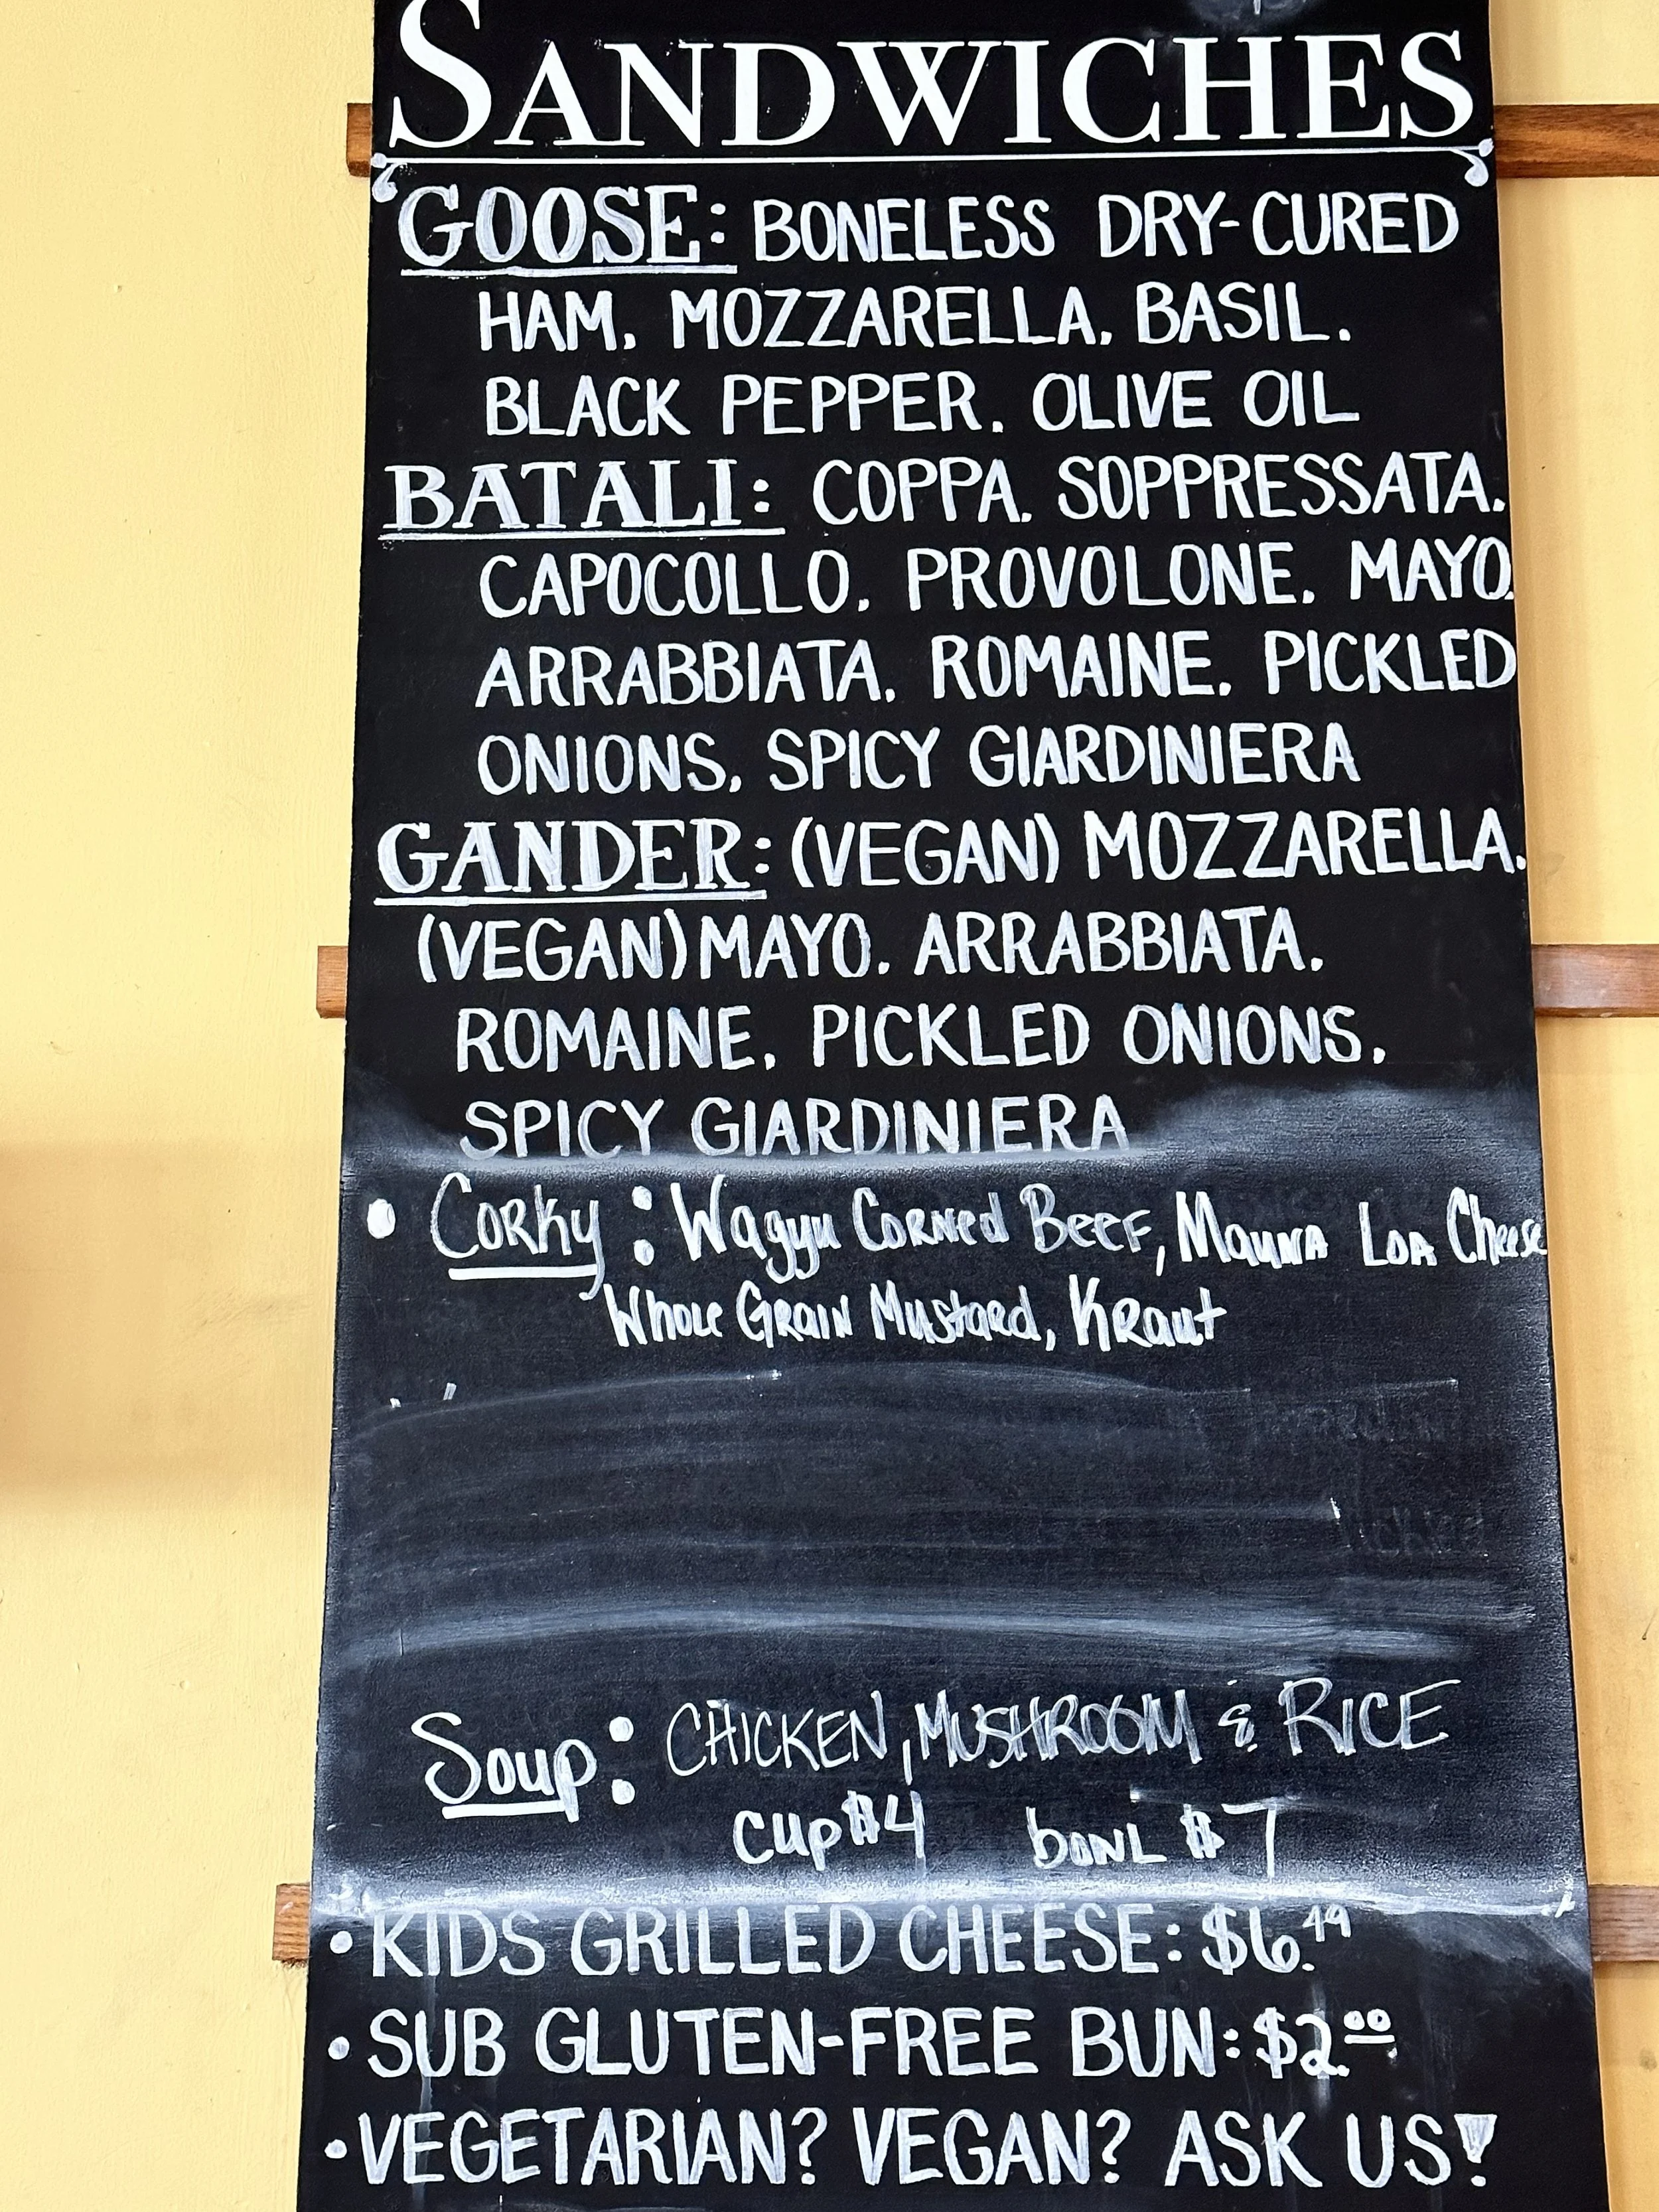 SANDWICHES
GOOSE: BONELESS DRY-CURED
HAM, MOZZARELLA, BASIL,
BLACK PEPPER, OLIVE OIL
BATALI: COPPA, SOPPRESSATA,
CAPOCOLLO, PROVOLONE, MAYO,
ARRABBIATA, ROMAINE, PICKLED
ONIONS, SPICY GIARDINIERA
GANDER: (VEGAN) MOZZARELLA,
(VEGAN) MAYO, ARRABBIATA,
ROMAINE, PICKLED ONIONS,
SPICY GIARDINIERA
• Corky: Wagyu Corned Beef, Mauna Loa Cheese
Whole Grain Mustard, Kraut
Soup: CHICKEN, MUSHROOM & RICE
cup $4 bowl $7
• KIDS GRILLED CHEESE: $6.49
• SUB GLUTEN-FREE BUN: $2.00
• VEGETARIAN? VEGAN? ASK US!